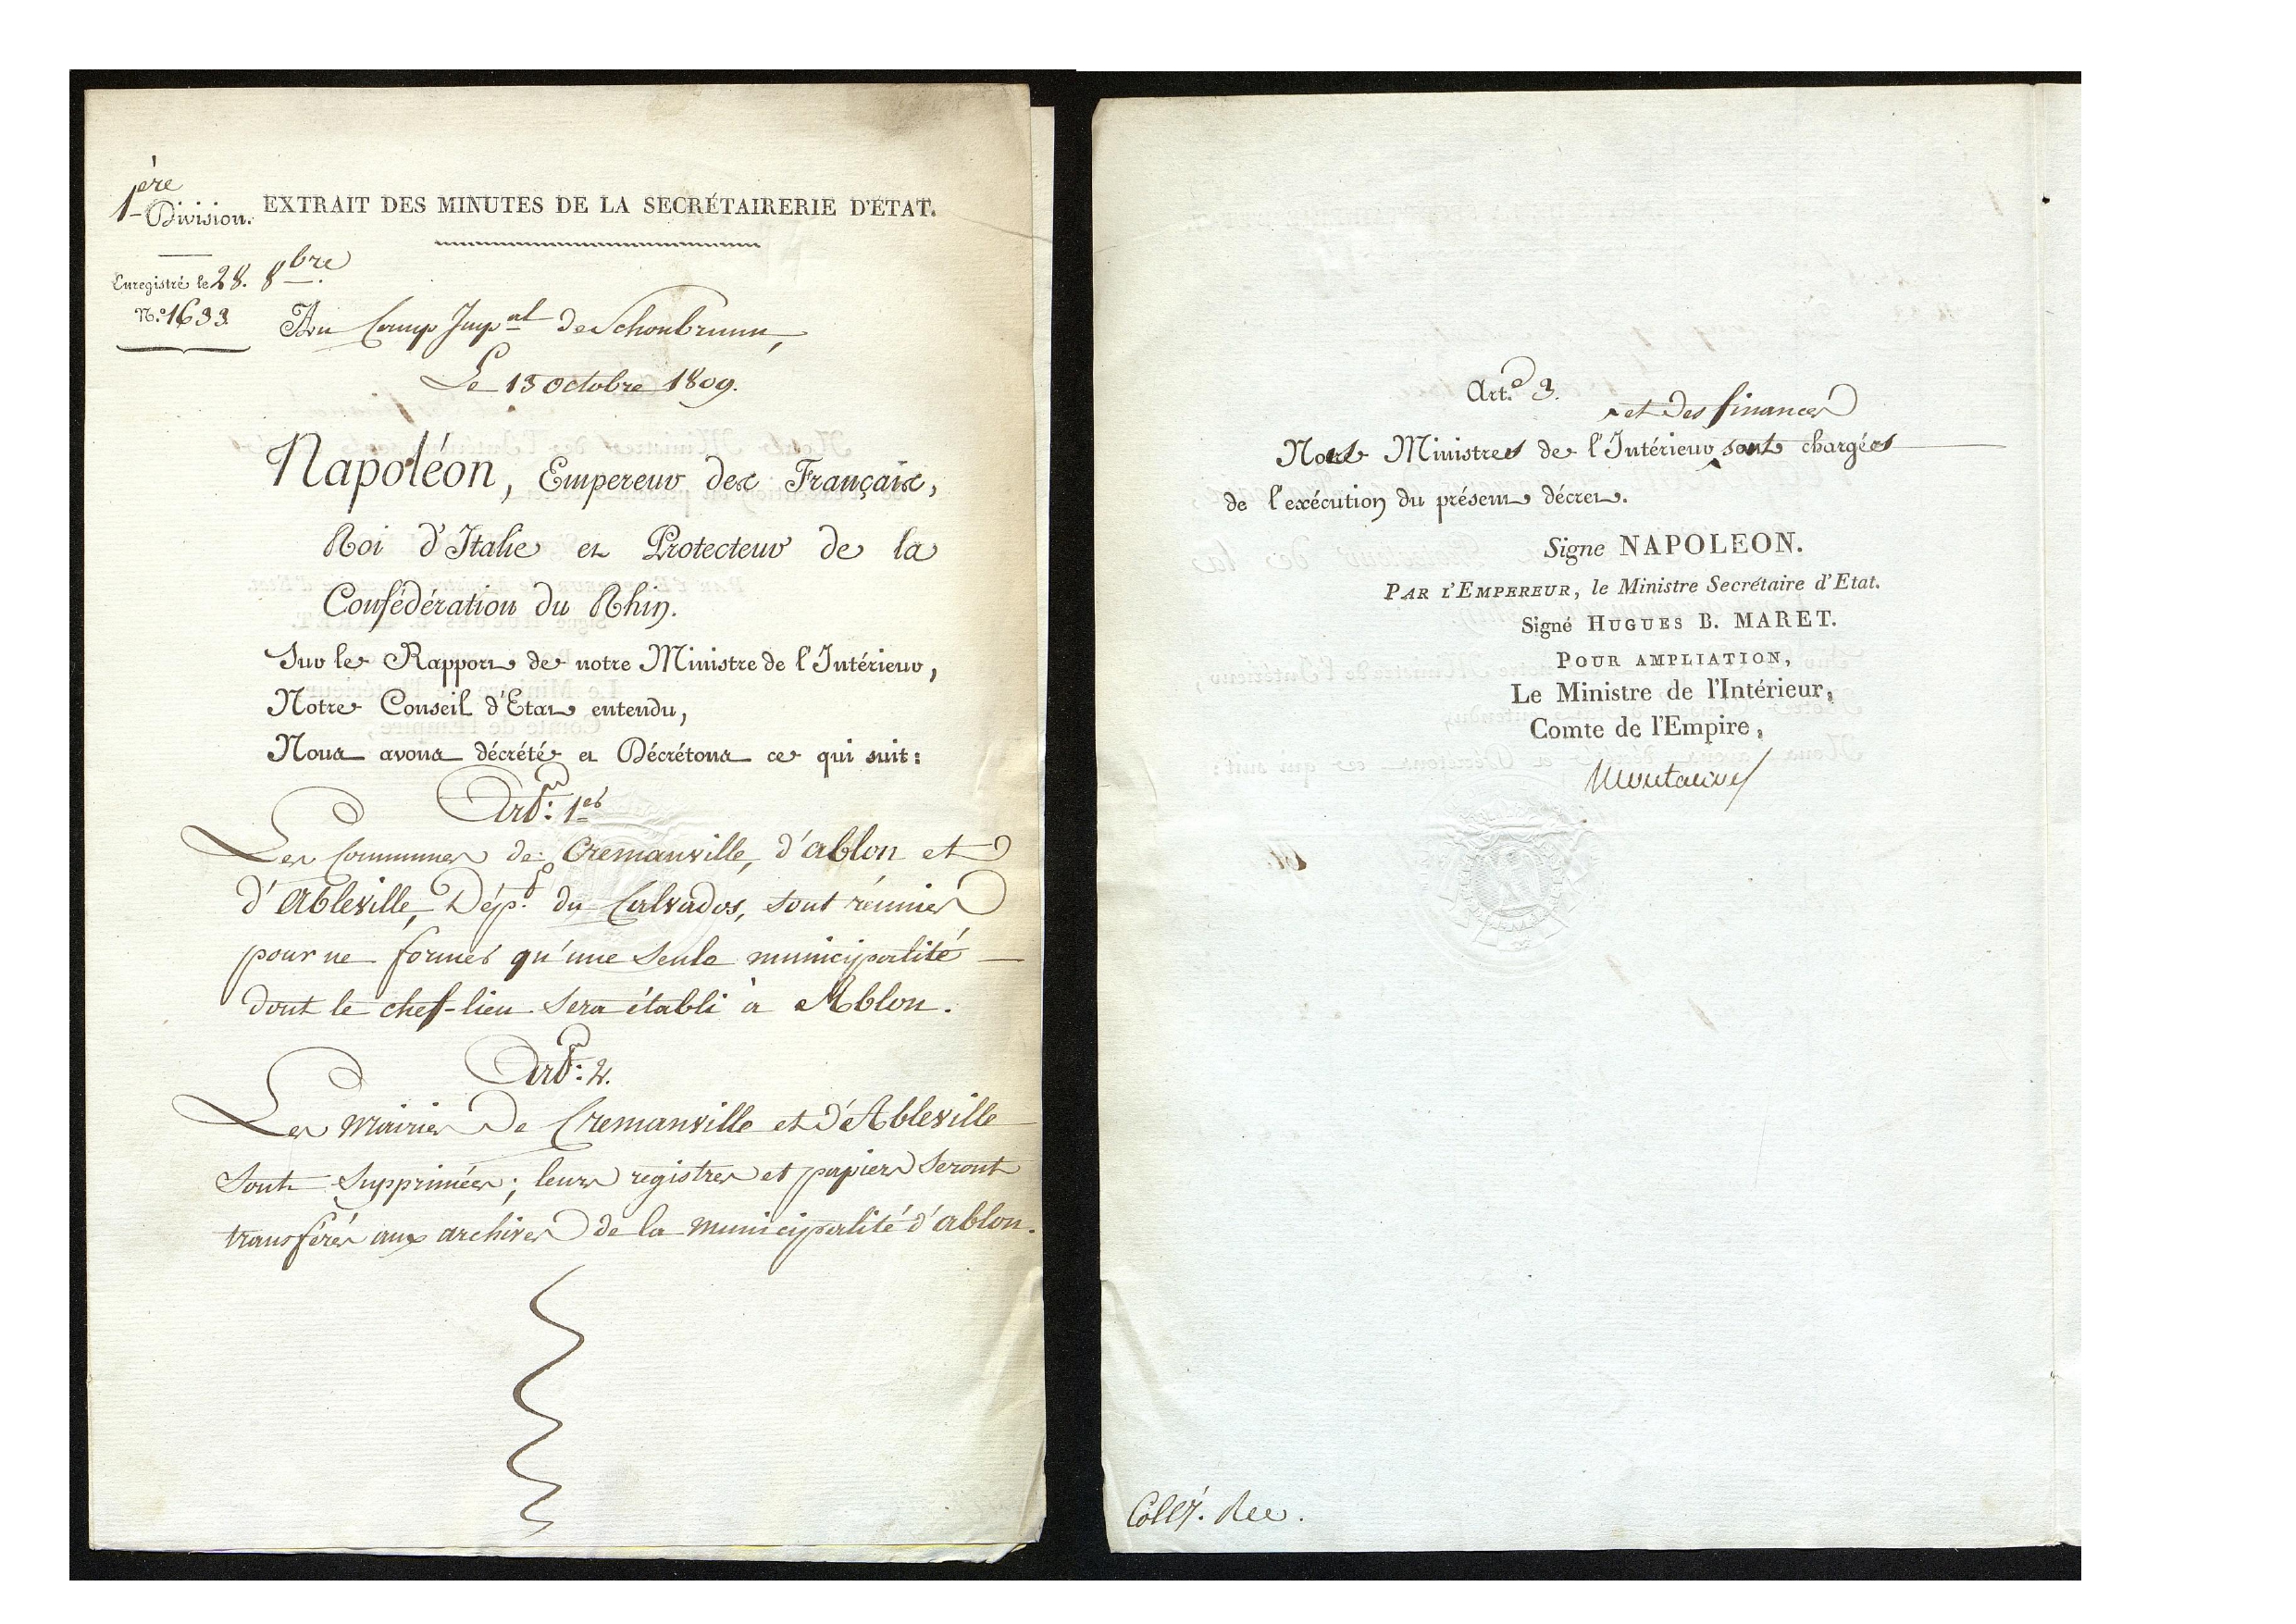 1ère Division.
EXTRAIT DES MINUTES DE LA SECRÉTAIRERIE D'ÉTAT.
Enregistré le 28. 8bre
N.º 1633
Au Camp Impal de Schonbrunn,
Le 13 octobre 1809.
Napoléon, Empereur des Français,
Roi d'Italie et Protecteur de la
Confédération du Rhin.
Sur le Rapport de notre Ministre de l'Intérieur,
Notre Conseil d'Etat entendu,
Nous avons décrété et Décrétons ce qui suit:
Art: 1er
Les Communes de Cremanville, d'ablon et
d'Ableville, Dépt. du Calvados, sont réunies
pour ne former qu'une seule municipalité
dont le chef-lieu sera établi à Ablon.
Art: 2.
Les Mairies De Cremanville et d'Ableville
sont supprimées; leurs registres et papiers seront
transférés aux archives de la municipalité d'ablon.
Art.e 3.
et des finances
Nos Ministres de l'Intérieur sont chargées
de l'exécution du présent décret.
Signé NAPOLEON.
PAR L'EMPEREUR, le Ministre Secrétaire d'Etat.
Signé HUGUES B. MARET.
POUR AMPLIATION,
Le Ministre de l'Intérieur,
Comte de l'Empire,
Montalivet